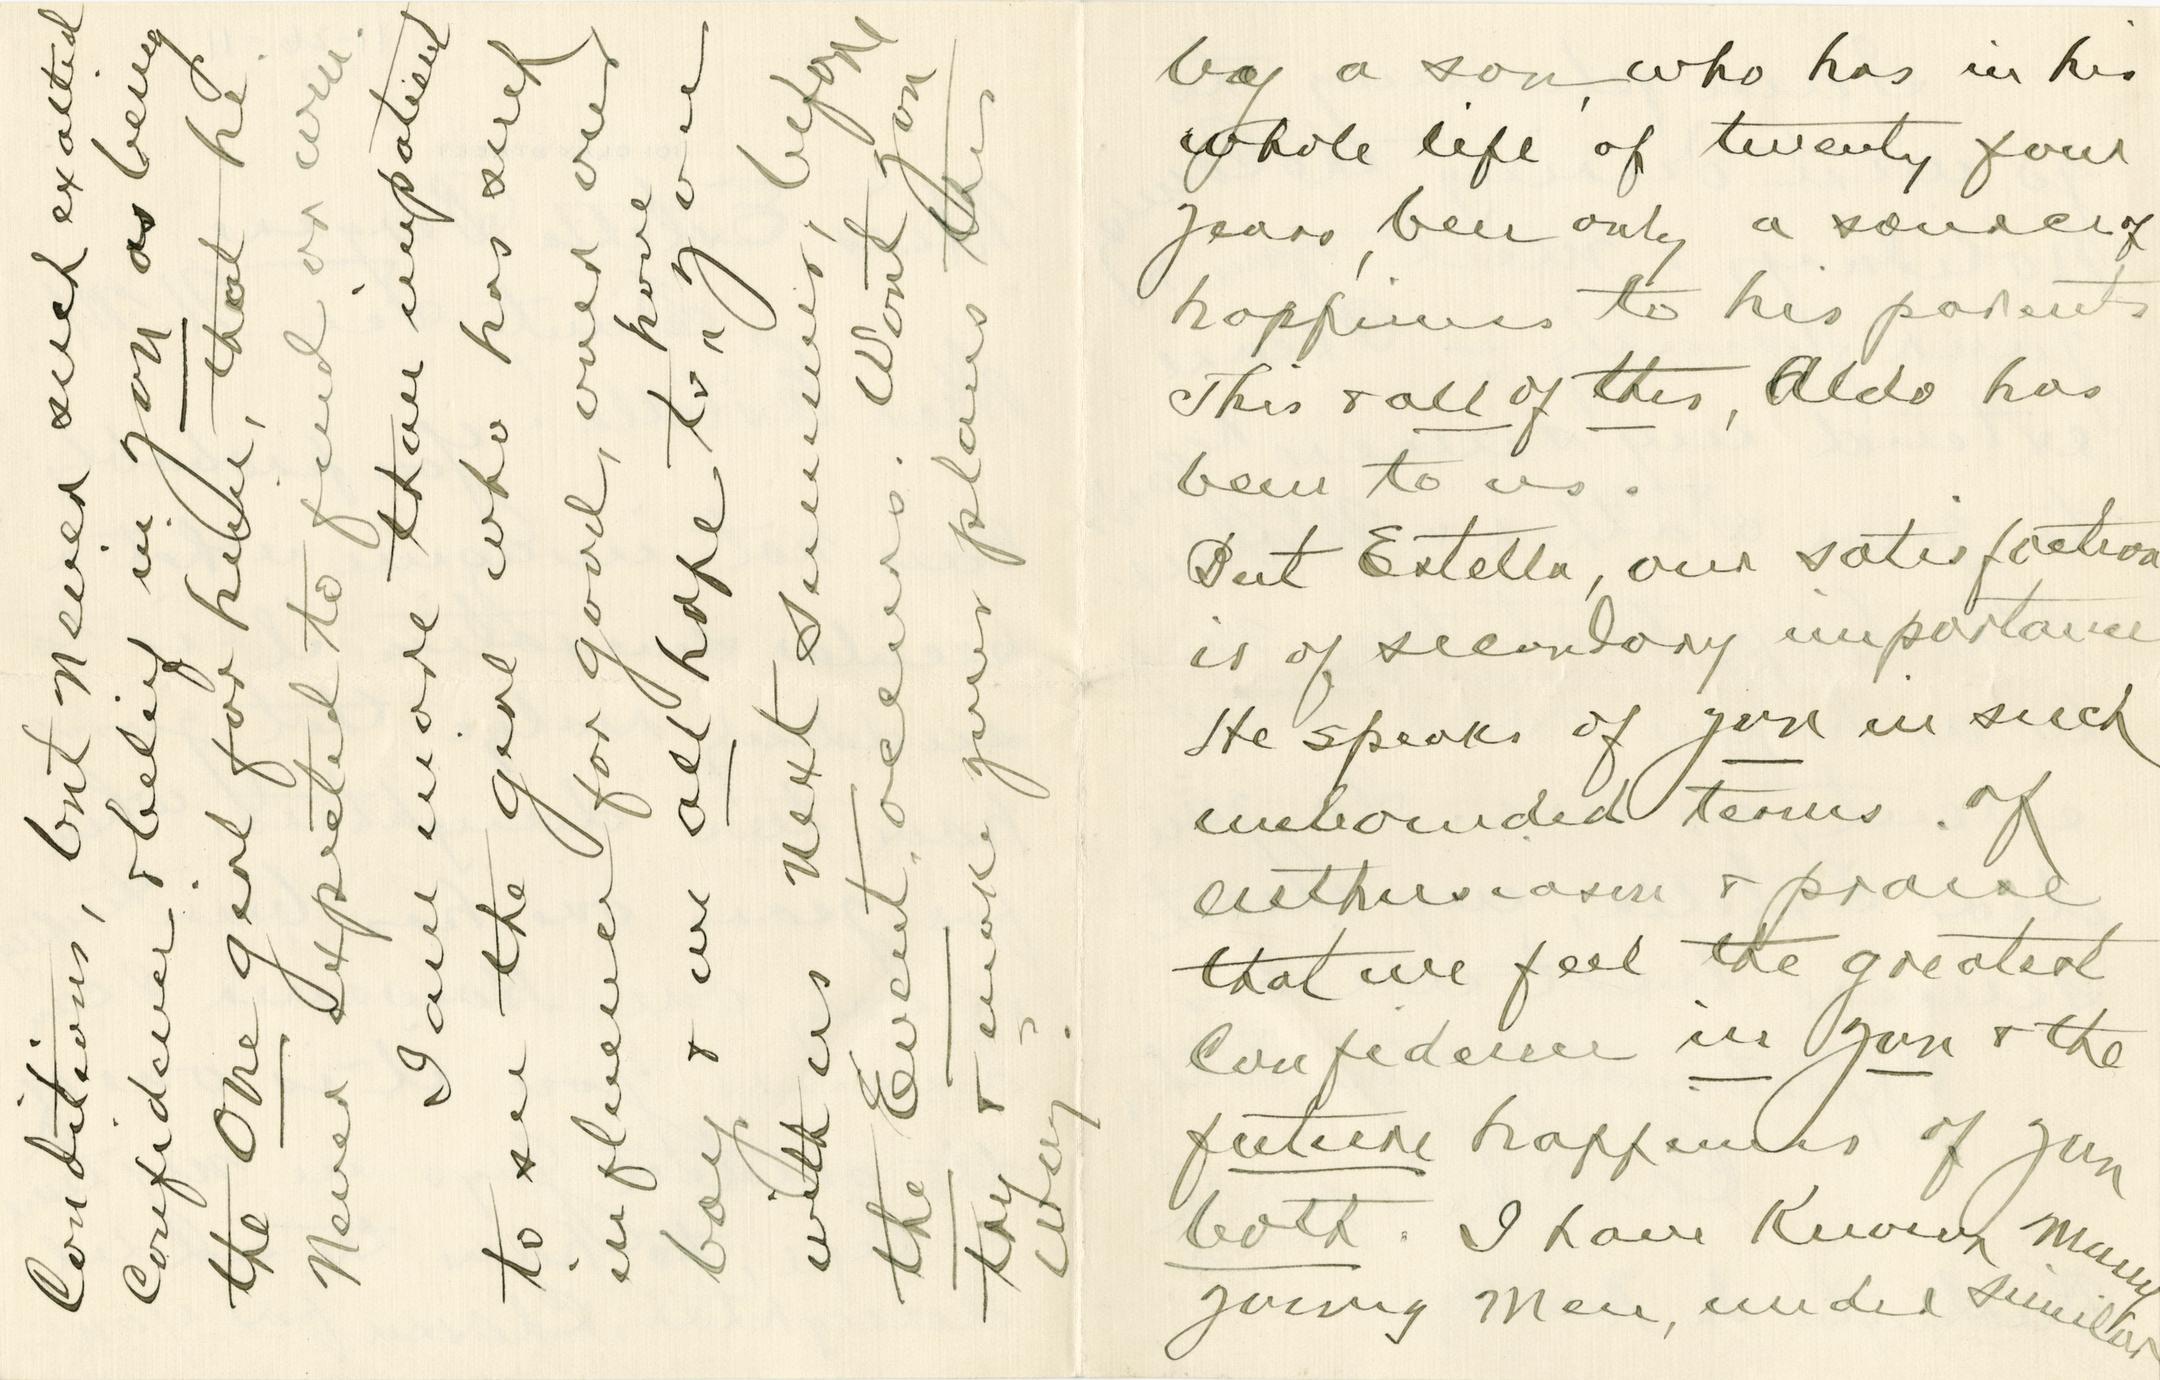 by a son, who has in his
whole life of twenty four
years, been only a source of
happiness to his parents
This & all of this, Aldo has
been to us.
But Estella, our satisfaction
is of secondary importance
He speaks of you in such
unbounded terms of
enthusiasm & praise
that we feel the greatest
confidence in you & the
future happiness of you
both. I have known many
young men, under similar
Conditions, but never such exalted
confidence & belief in you as being
the one girl for him, that he
never expected to find or win.
I am more than impatient
to see the girl who has such
influence for good, over our
boy & we all hope to have
"you"
with us next summer, before
the Event occurs. Wont you
try & make your plans this
way?